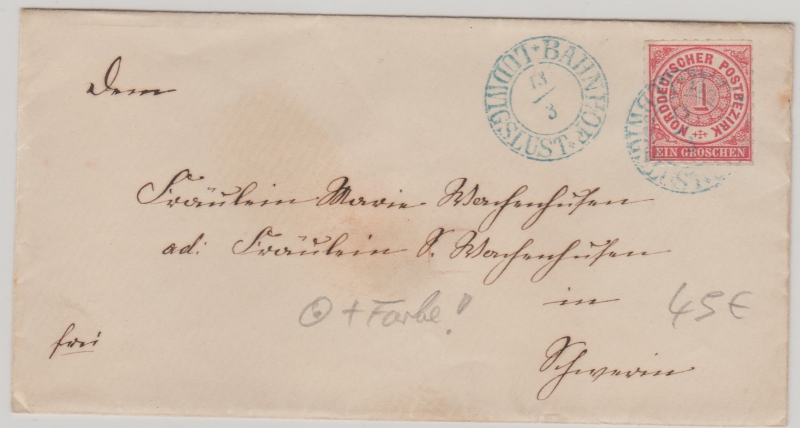 LUDWIGSLUST * BAHNHOF *
13/3
NORDDEUTSCHER POSTBEZIRK
1
EIN GROSCHEN
Dem
Fräulein Marie Wachenhusen
ad: Fräulein S. Wachenhusen
in
+ Farbe!
45€
frei
Schwerin